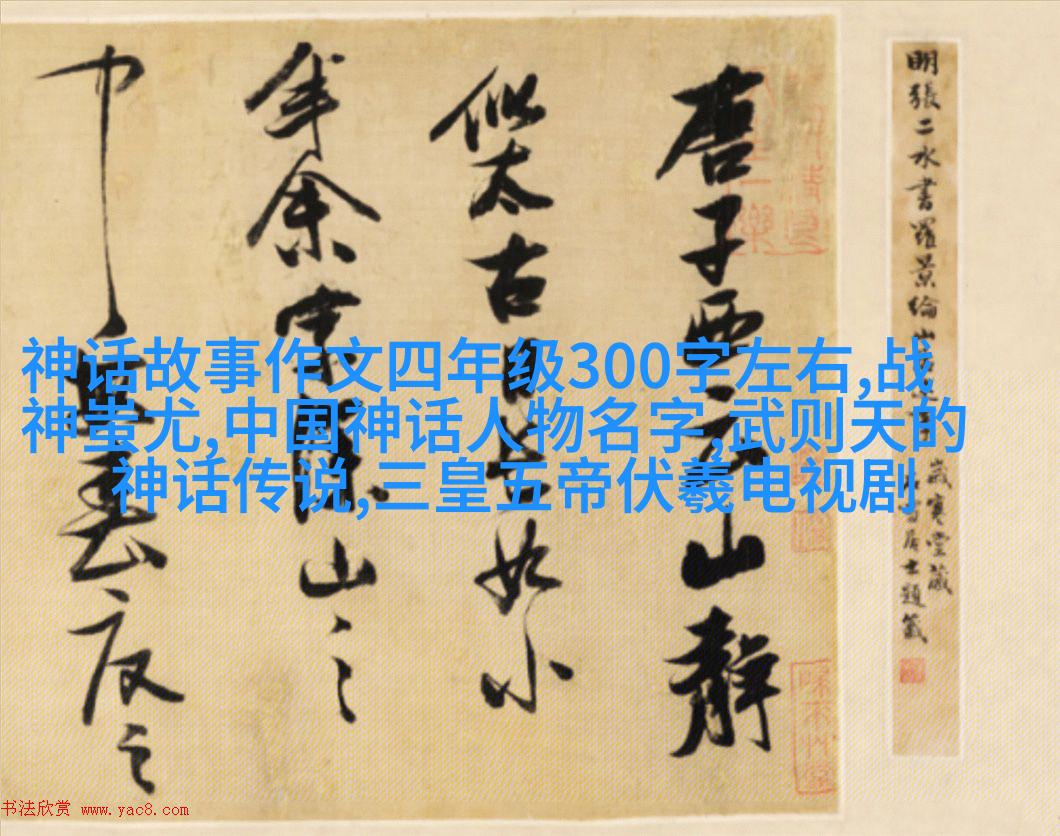 明張二水書羅景綸山
歲寒堂藏
居士題籤
唐子西云山靜
似太古日長如小
年余家深山之
中每春夏之
神话故事作文四年级300字左右,战
神蚩尤,中国神话人物名字,武则天的
神话传说,三皇五帝伏羲电视剧
书法欣赏 www.yac8.com